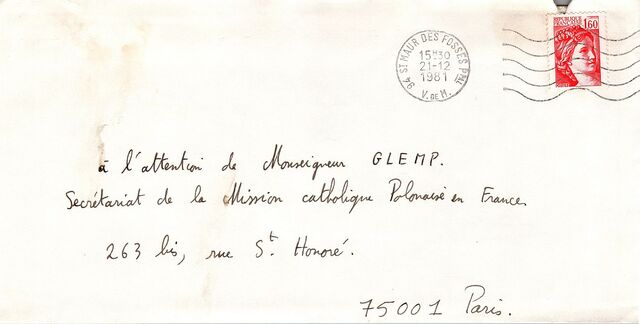 REPUBLIQUE FRANÇAISE
1,60
94 ST MAUR DES FOSSES PPAL
15H30
21-12
1981
V. DE M.
à l'attention de Monseigneur GLEMP.
Secrétariat de la Mission catholique Polonaise en France
263 bis, rue St. Honoré.
75001 Paris.